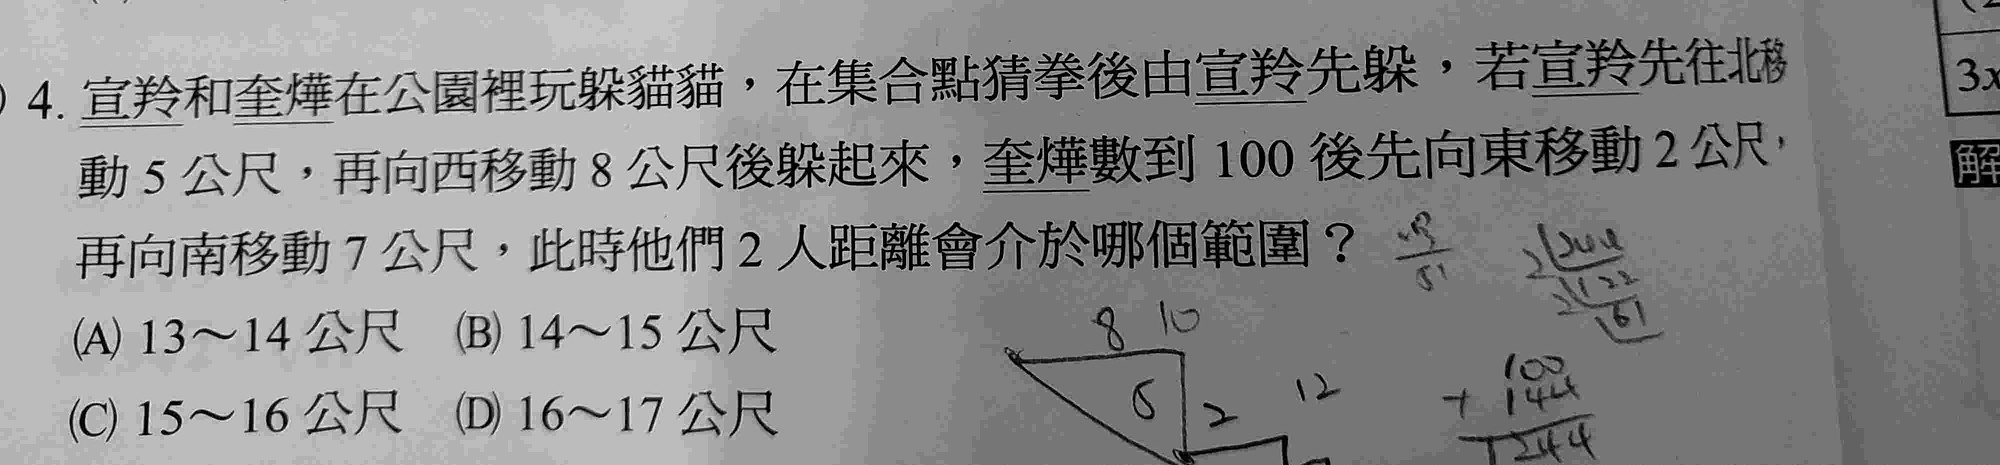 4. 宣羚和奎燁在公園裡玩躲貓貓，在集合點猜拳後由宣羚先躲，若宣羚先往北移
動 5 公尺，再向西移動 8 公尺後躲起來，奎燁數到 100 後先向東移動 2 公尺，
再向南移動 7 公尺，此時他們 2 人距離會介於哪個範圍？
(A) 13～14 公尺 (B) 14～15 公尺
(C) 15～16 公尺 (D) 16～17 公尺
3x
解
8 10
5 2 12
2 244
2 122
61
100
+ 144
244